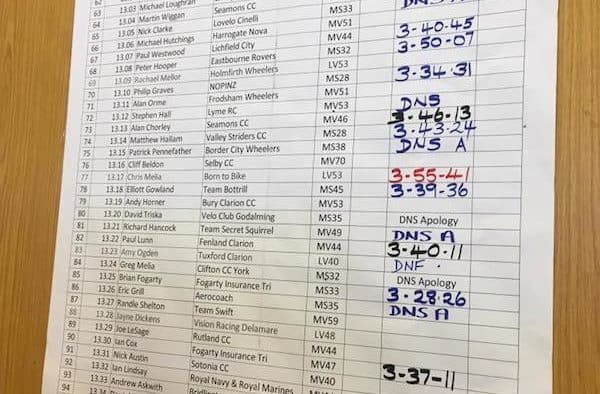 62 DNS
63 13.03 Michael Loughran
64 13.04 Martin Wiggan Seamons CC
65 13.05 Nick Clarke Lovelo Cinelli MS33
66 13.06 Michael Hutchings Harrogate Nova MV51 3-40-45
67 13.07 Paul Westwood Lichfield City MV44 3-50-07
68 13.08 Peter Hooper Eastbourne Rovers MS32
69 13.09 Rachael Mellor Holmfirth Wheelers LV53
70 13.10 Philip Graves NOPINZ MS28 3-34-31
71 13.11 Alan Orme Frodsham Wheelers MV51
72 13.12 Stephen Hall Lyme RC MV53 DNS
73 13.13 Alan Chorley Seamons CC MV46 3-46-13
74 13.14 Matthew Hallam Valley Striders CC MS28 3-43-24
75 13.15 Patrick Pennefather Border City Wheelers MS38 DNS A
76 13.16 Cliff Beldon Selby CC MV70
77 13.17 Chris Melia Born to Bike LV53 3-55-41
78 13.18 Elliott Gowland Team Bottrill MS45 3-39-36
79 13.19 Andy Horner Bury Clarion CC MV53
80 13.20 David Triska Velo Club Godalming MS35 DNS Apology
81 13.21 Richard Hancock Team Secret Squirrel MV49 DNS A
82 13.22 Paul Lunn Fenland Clarion MV44 3-40-11
83 13.23 Amy Ogden Tuxford Clarion LV40 DNF
84 13.24 Greg Melia Clifton CC York MS32 DNS Apology
85 13.25 Brian Fogarty Fogarty Insurance Tri MS33 3-28-26
86 13.26 Eric Grill Aerocoach MS35 DNS A
87 13.27 Randle Shelton Team Swift MV59
88 13.28 Jayne Dickens Vision Racing Delamare LV48
89 13.29 Joe LeSage Rutland CC MV44
90 13.30 Ian Cox Fogarty Insurance Tri MV47
91 13.31 Nick Austin Sotonia CC MV40 3-37-11
92 13.32 Ian Lindsay Royal Navy & Royal Marines
93 13.33 Andrew Askwith
94